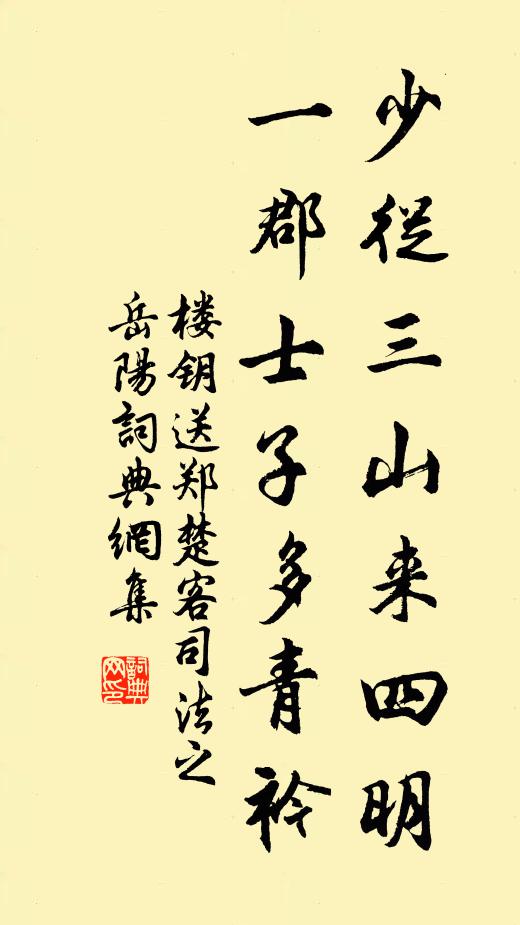 少從三山来四明
一郡士子多青衿
楼钥送郑楚客司法之
岳陽詞典網集
詞典网印